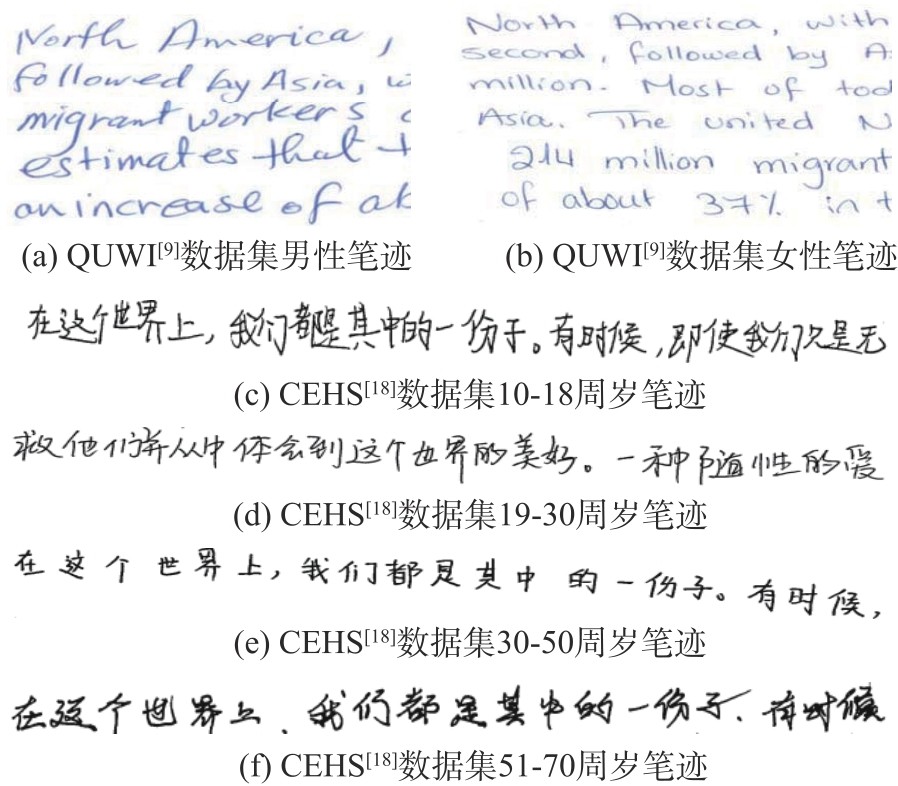 North America,
followed by Asia, w
migrant workers
estimates that t
an increase of ab
(a) QUWI[9]数据集男性笔迹
North America, with
second, followed by A
million. Most of tod
Asia. The united N
214 million migrant
of about 37% in t
(b) QUWI[9]数据集女性笔迹
在这个世界上,我们都是其中的一份子。有时候,即使我们只是无
(c) CEHS[18]数据集10-18周岁笔迹
救他们并从中体会到这个世界的美好。一种隐性的爱
(d) CEHS[18]数据集19-30周岁笔迹
在这个世界上,我们都是其中的一份子。有时候,
(e) CEHS[18]数据集30-50周岁笔迹
在这个世界上、我们都是其中的一份子.有时候
(f) CEHS[18]数据集51-70周岁笔迹